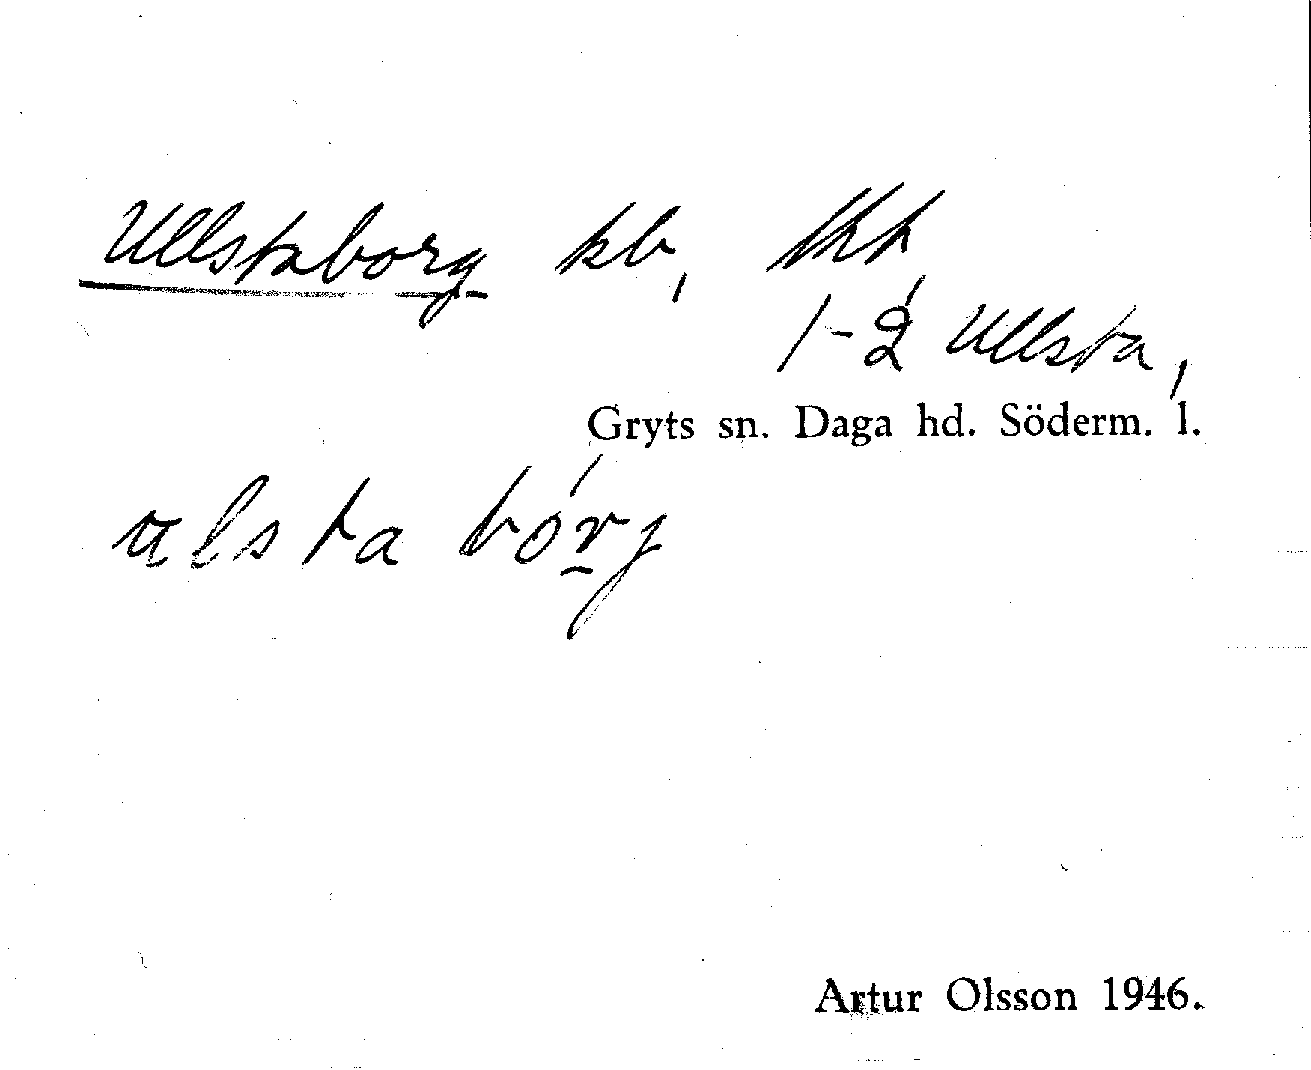 Ullstaborg kb,
1-2 Ullsta,
Gryts sn. Daga hd. Söderm. l.
ulsta borj
Artur Olsson 1946.